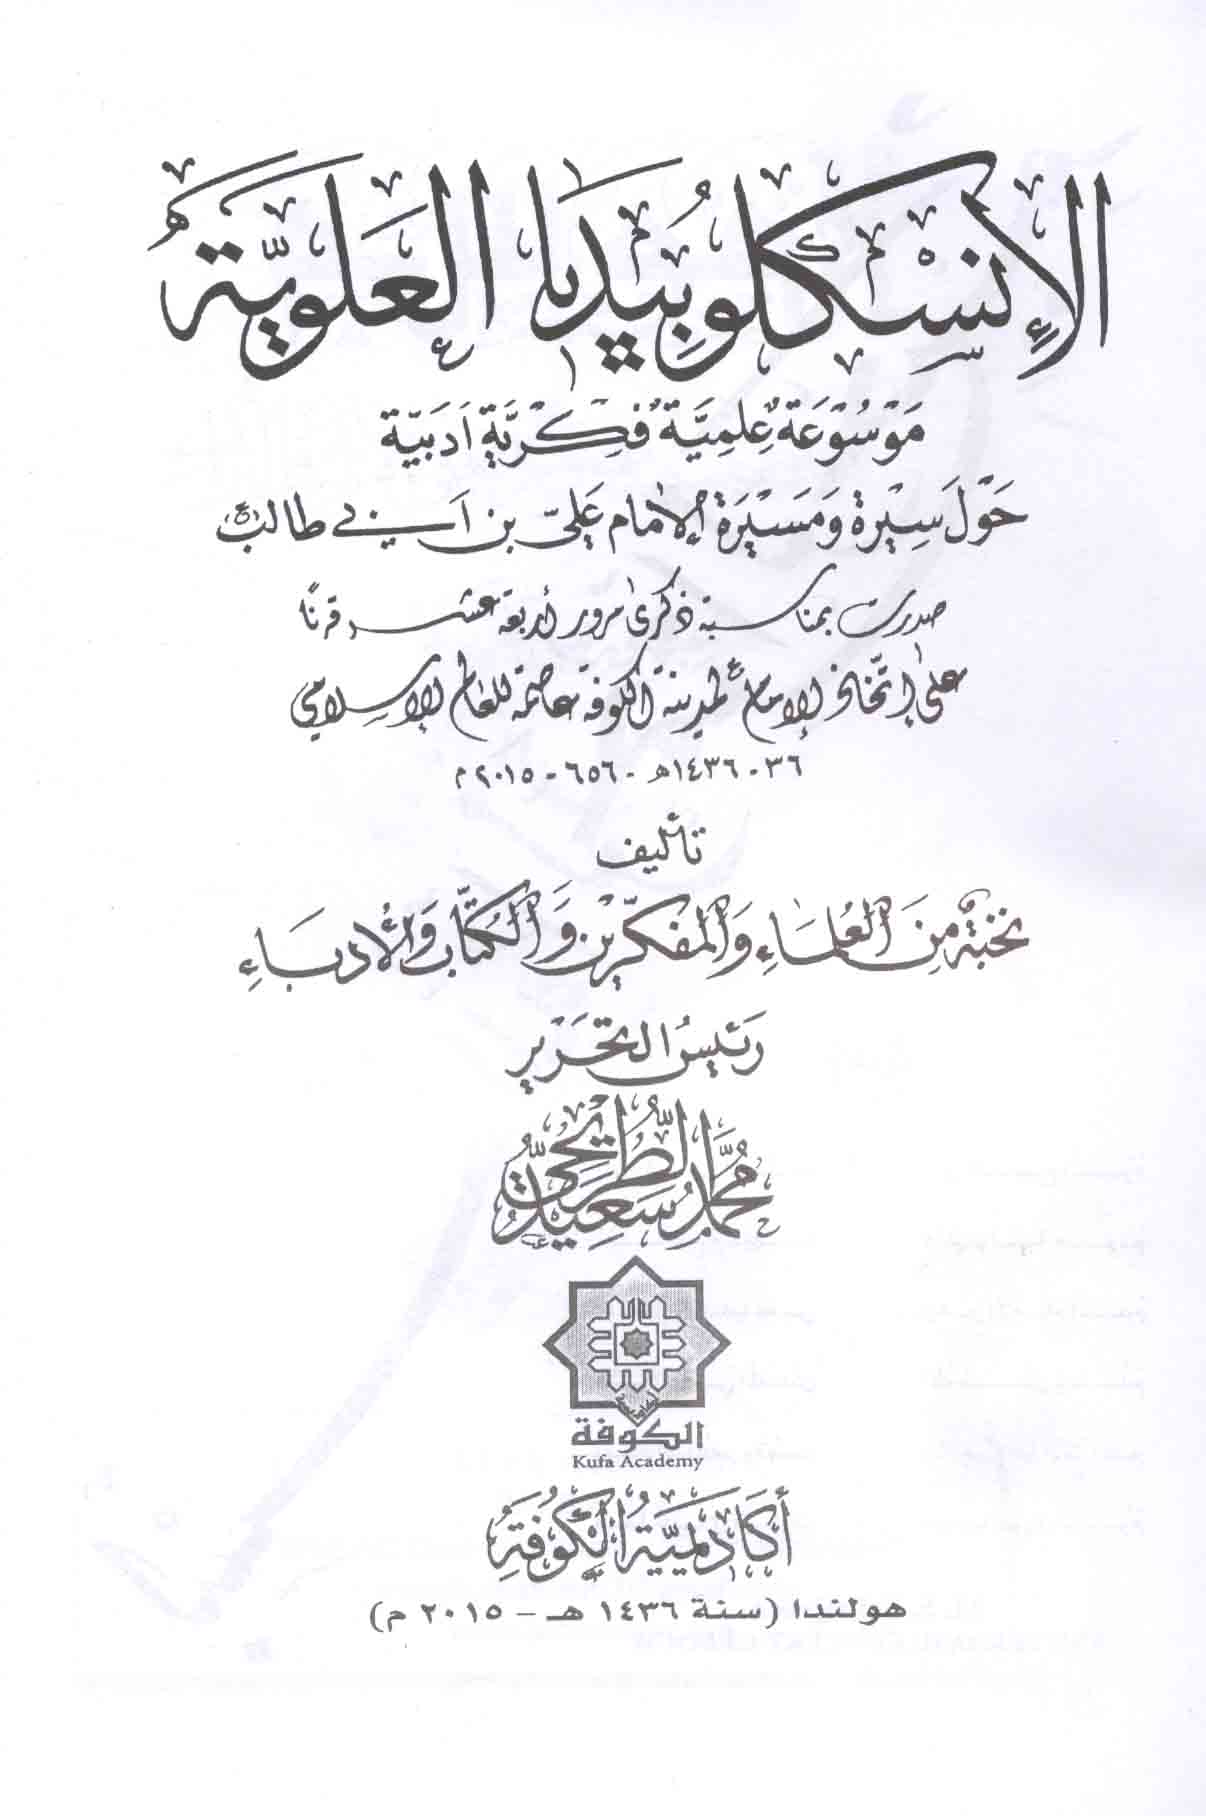 الإنسكلوبيديا العلوية
موسوعة علمية فكرية أدبية
حول سيرة ومسيرة الإمام علي بن أبي طالب (ع)
صدرت بمناسبة ذكرى مرور أربعة عشر قرنًا
على إتخاذ الإمام ع لمدينة الكوفة عاصمة للعالم الإسلامي
٣٦ - ١٤٣٦هـ - ٦٥٦ - ٢٠١٥م
تأليف
نخبة من العلماء والمفكرين والكتّاب والأدباء
رئيس التحرير
محمد سعيد الطريحي
الكوفة
Kufa Academy
أكاديمية الكوفة
هولندا (سنة ١٤٣٦ هـ – ٢٠١٥ م)